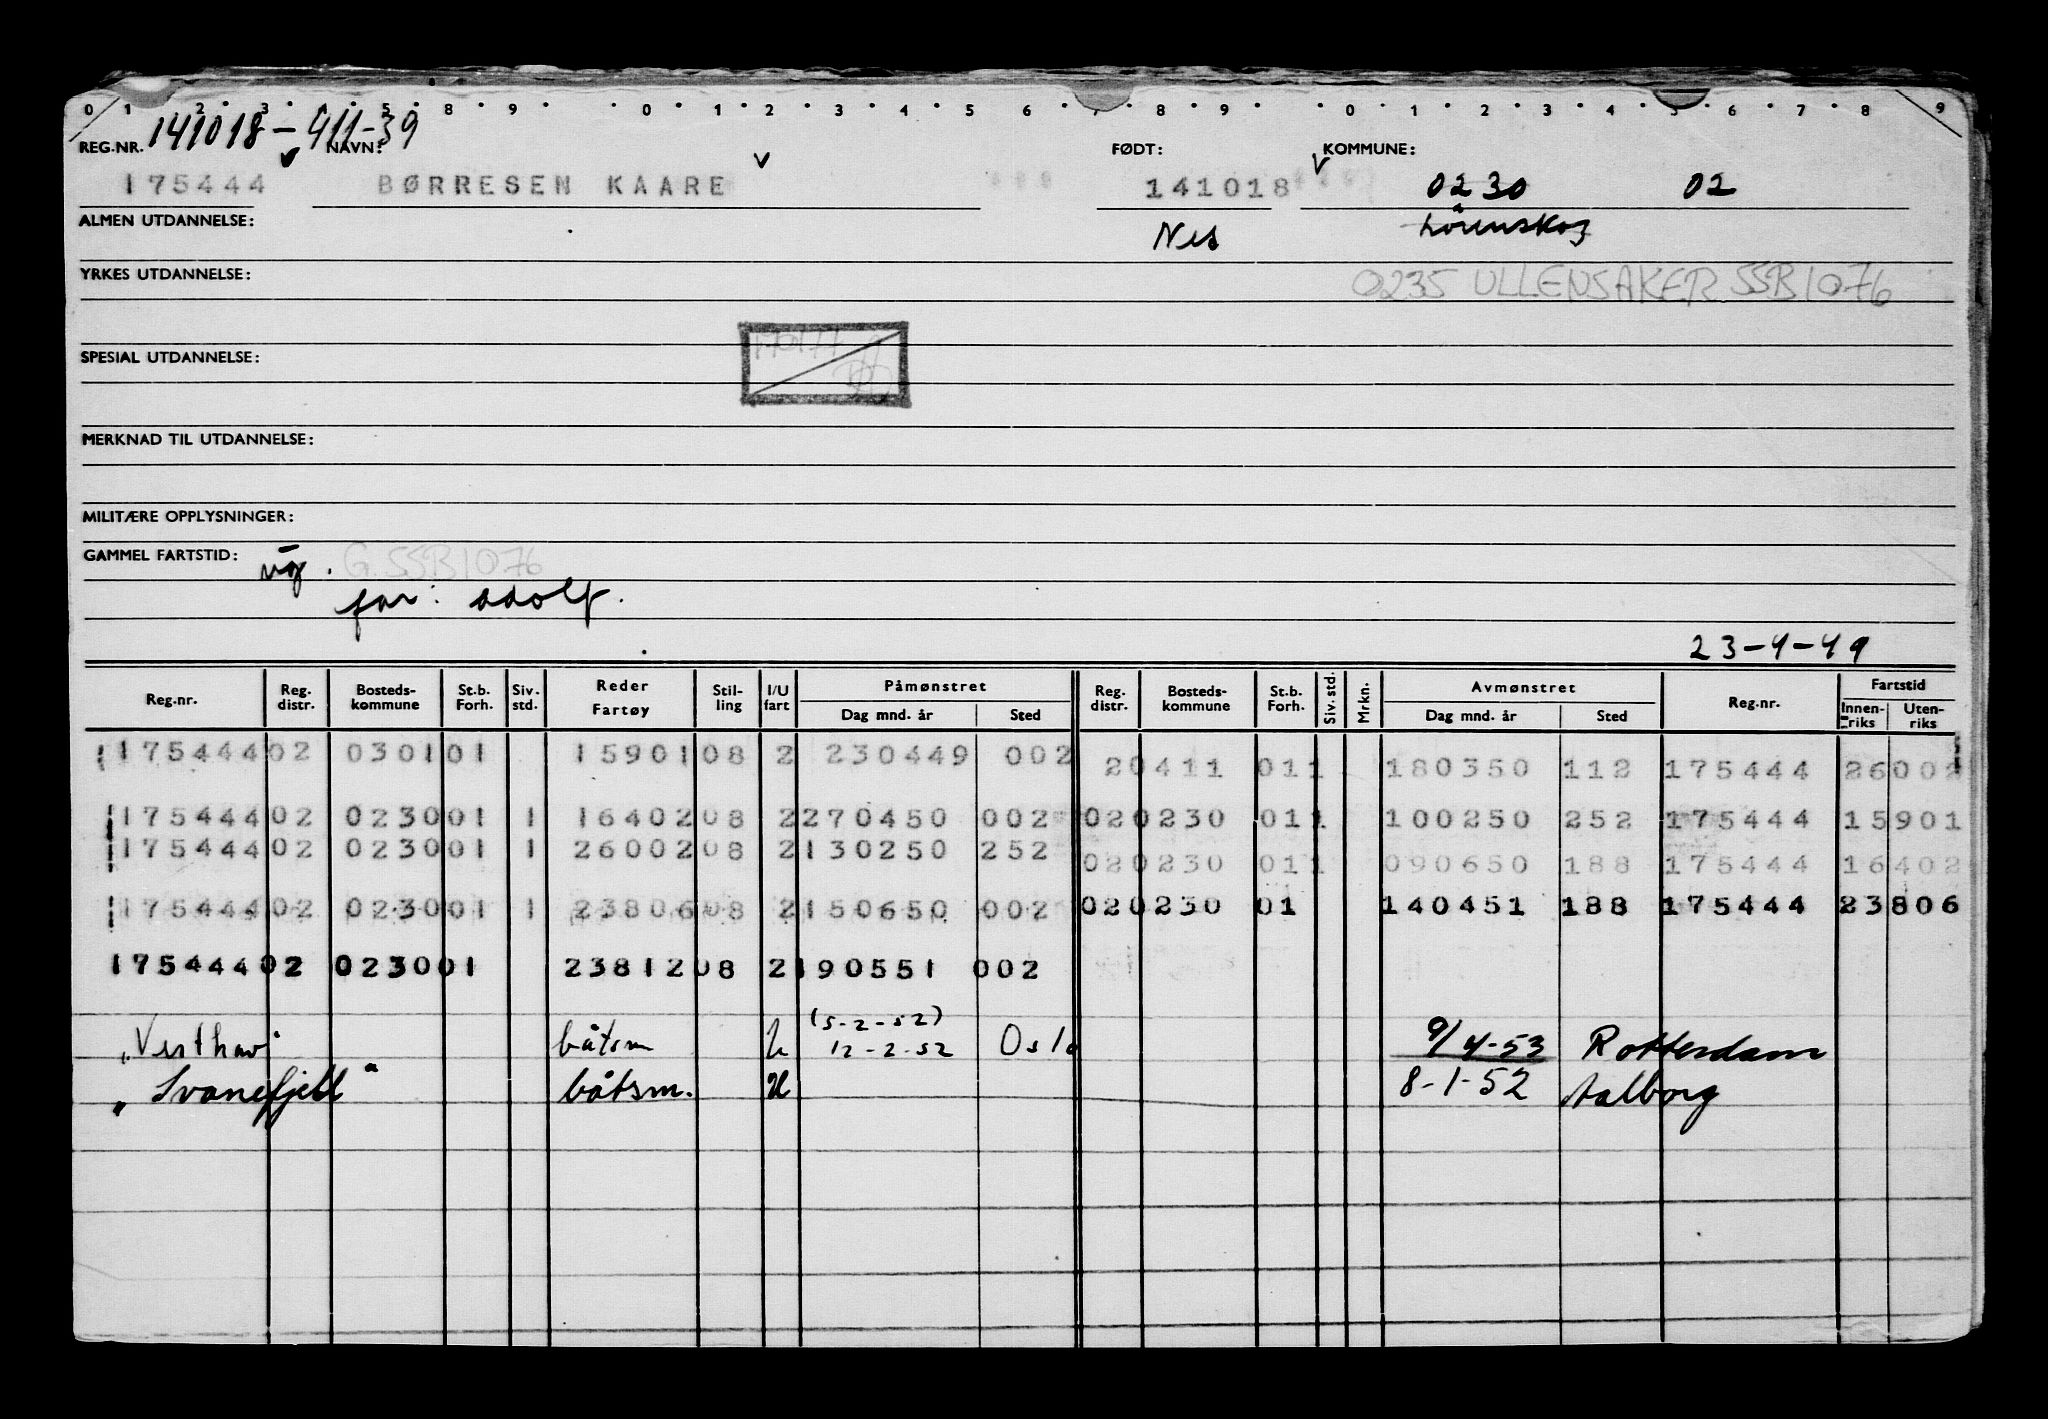 0 1 2 3 4 5 8 9 0 1 2 3 4 5 6 7 8 9 0 1 2 3 4 5 6 7 8 9
141018-411-39
REG.NR. NAVN: FØDT: KOMMUNE:
175444 BØRRESEN KAARE 141018 0230 02
ALMEN UTDANNELSE: Nes Lörenskog
YRKES UTDANNELSE: 0235 ULLENSAKER SSB1076
170177
SPESIAL UTDANNELSE:
MERKNAD TIL UTDANNELSE:
MILITÆRE OPPLYSNINGER:
GAMMEL FARTSTID: G. SSB1076
far: Adolf.
23-4-49
Reg.nr. Reg. distr. Bosteds-kommune St.b. Forh. Siv. std. Reder Fartøy Stil-ling I/U fart Påmønstret Dag mnd. år Sted Reg. distr. Bosteds-kommune St.b. Forh. Siv. std. Mrkn. Avmønstret Dag mnd. år Sted Reg.nr. Fartstid Innen-riks Uten-riks
175444 02 0301 01 15901 08 2 230449 002 20411 011 180350 112 175444 26002
175444 02 0230 01 1 16402 08 2 270450 002 020230 011 100250 252 175444 15901
175444 02 0230 01 1 26002 08 2 130250 252 020230 011 090650 188 175444 16402
175444 02 0230 01 1 23806 08 2 150650 002 020230 01 140451 188 175444 23806
175444 02 0230 01 23812 08 2 190551 002
(5-2-52)
"Vesthav" båtsm U 12-2-52 Oslo 9/4-53 Rotterdam
"Svanefjell" båtsm. U 8-1-52 Aalborg